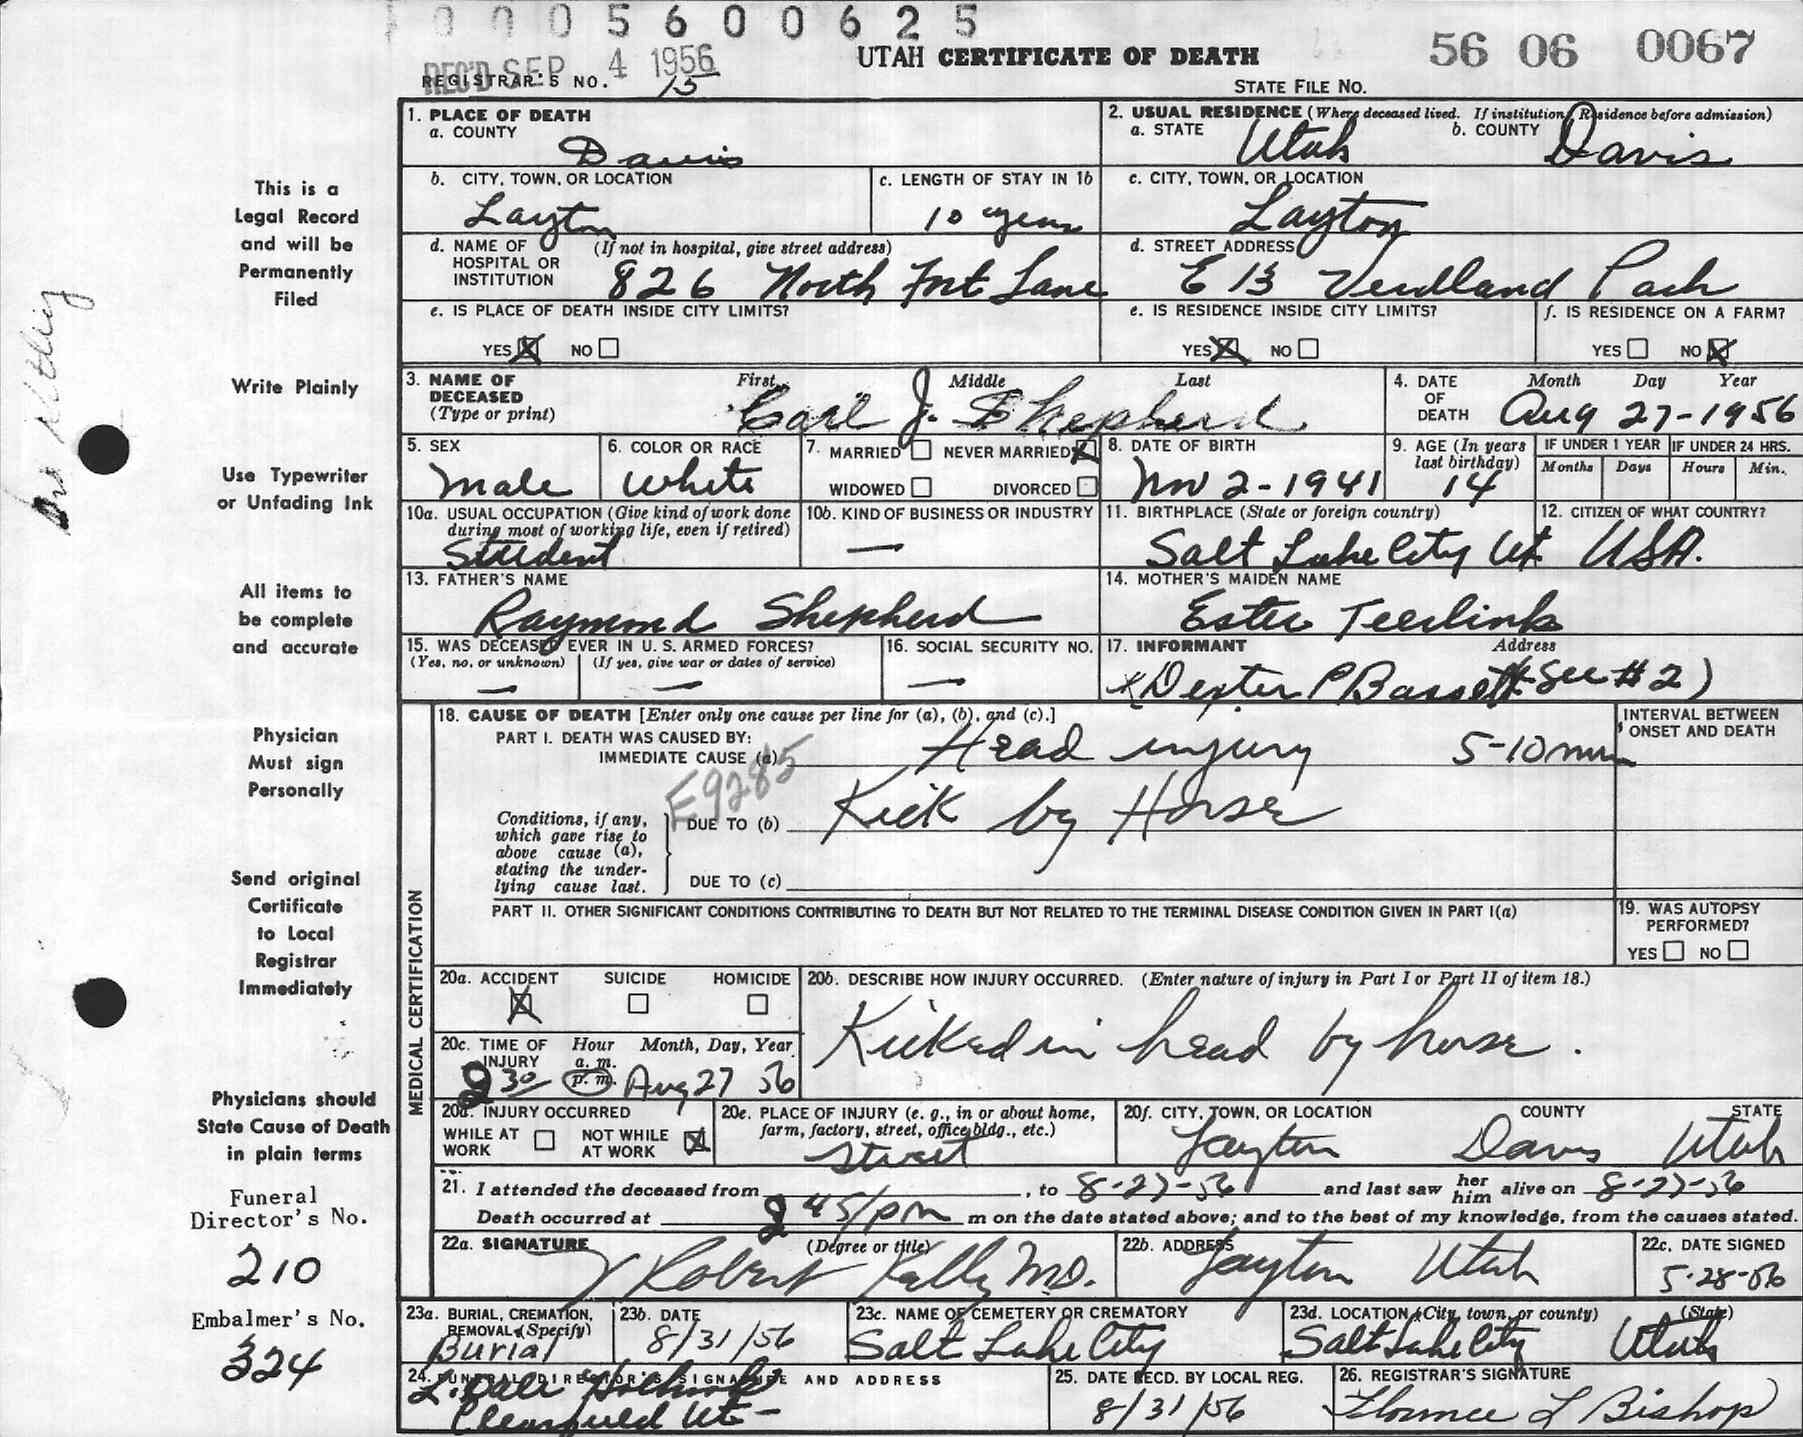 0 0 0 5 6 0 0 6 2 5
REC'D SEP 4 1956
UTAH CERTIFICATE OF DEATH
56 06 0067
REGISTRAR'S NO. 15
STATE FILE NO.
1. PLACE OF DEATH
a. COUNTY
Davis
2. USUAL RESIDENCE (Where deceased lived. If institution, Residence before admission)
a. STATE Utah b. COUNTY Davis
b. CITY, TOWN, OR LOCATION
Layton
c. LENGTH OF STAY IN 1b
10 years
c. CITY, TOWN, OR LOCATION
Layton
d. NAME OF HOSPITAL OR INSTITUTION (If not in hospital, give street address)
826 North Fort Lane
d. STREET ADDRESS
E 13 Verdland Park
e. IS PLACE OF DEATH INSIDE CITY LIMITS?
YES X NO
e. IS RESIDENCE INSIDE CITY LIMITS?
YES X NO
f. IS RESIDENCE ON A FARM?
YES NO X
3. NAME OF DECEASED (Type or print)
First Middle Last
Carl J. Shepherd
4. DATE OF DEATH
Month Day Year
Aug 27-1956
5. SEX
Male
6. COLOR OR RACE
White
7. MARRIED NEVER MARRIED X
WIDOWED DIVORCED
8. DATE OF BIRTH
Nov 2-1941
9. AGE (In years last birthday)
14
IF UNDER 1 YEAR
Months Days
IF UNDER 24 HRS.
Hours Min.
10a. USUAL OCCUPATION (Give kind of work done during most of working life, even if retired)
Student
10b. KIND OF BUSINESS OR INDUSTRY
—
11. BIRTHPLACE (State or foreign country)
Salt Lake City Ut.
12. CITIZEN OF WHAT COUNTRY?
USA.
13. FATHER'S NAME
Raymond Shepherd
14. MOTHER'S MAIDEN NAME
Ester Teerlink
15. WAS DECEASED EVER IN U. S. ARMED FORCES?
(Yes, no, or unknown) (If yes, give war or dates of service)
— —
16. SOCIAL SECURITY NO.
—
17. INFORMANT Address
x Dexter P Bassett (See #2)
MEDICAL CERTIFICATION
18. CAUSE OF DEATH [Enter only one cause per line for (a), (b), and (c).]
INTERVAL BETWEEN ONSET AND DEATH
PART I. DEATH WAS CAUSED BY:
IMMEDIATE CAUSE (a) Head injury 5-10 min
E9285
Conditions, if any, which gave rise to above cause (a), stating the underlying cause last.
DUE TO (b) Kick by Horse
DUE TO (c)
PART II. OTHER SIGNIFICANT CONDITIONS CONTRIBUTING TO DEATH BUT NOT RELATED TO THE TERMINAL DISEASE CONDITION GIVEN IN PART I(a)
19. WAS AUTOPSY PERFORMED?
YES NO
20a. ACCIDENT SUICIDE HOMICIDE
X
20b. DESCRIBE HOW INJURY OCCURRED. (Enter nature of injury in Part I or Part II of item 18.)
Kicked in head by horse.
20c. TIME OF INJURY
Hour Month, Day, Year
a. m.
p. m.
8 30 Aug 27 56
20d. INJURY OCCURRED
WHILE AT WORK NOT WHILE AT WORK X
20e. PLACE OF INJURY (e. g., in or about home, farm, factory, street, office bldg., etc.)
Street
20f. CITY, TOWN, OR LOCATION COUNTY STATE
Layton Davis Utah
21. I attended the deceased from , to 8-27-56 and last saw her him alive on 8-27-56
Death occurred at 8 45/pm m on the date stated above; and to the best of my knowledge, from the causes stated.
22a. SIGNATURE (Degree or title)
Robert Kelly M.D.
22b. ADDRESS
Layton Utah
22c. DATE SIGNED
5-28-56
23a. BURIAL, CREMATION, REMOVAL (Specify)
Burial
23b. DATE
8/31/56
23c. NAME OF CEMETERY OR CREMATORY
Salt Lake City
23d. LOCATION (City, town, or county) (State)
Salt Lake City Utah
24. FUNERAL DIRECTOR'S SIGNATURE AND ADDRESS
L. Dale
Clearfield Ut-
25. DATE RECD. BY LOCAL REG.
8/31/56
26. REGISTRAR'S SIGNATURE
Florence L Bishop
This is a
Legal Record
and will be
Permanently
Filed
Write Plainly
Use Typewriter
or Unfading Ink
All items to
be complete
and accurate
Physician
Must sign
Personally
Send original
Certificate
to Local
Registrar
Immediately
Physicians should
State Cause of Death
in plain terms
Funeral
Director's No.
210
Embalmer's No.
324